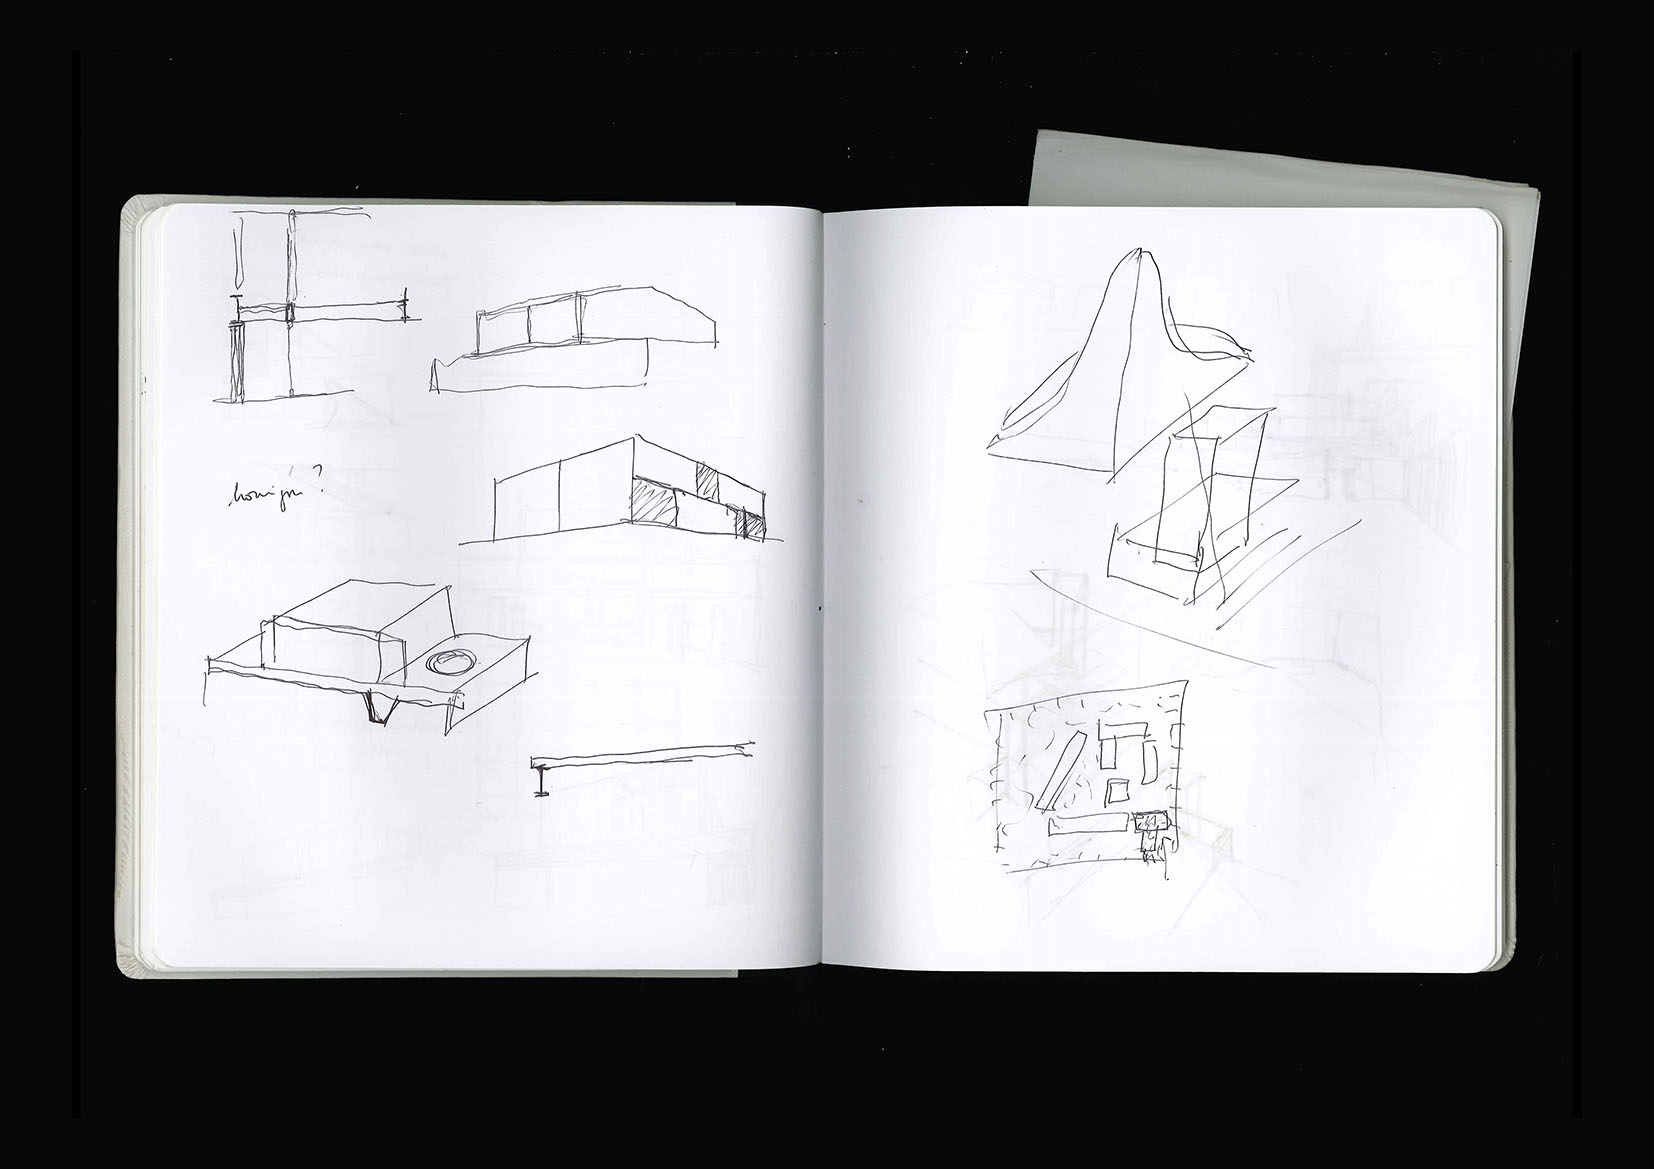 hormigón ?